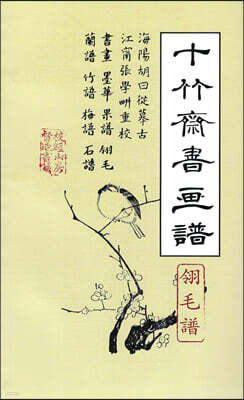 十竹齋書画譜
翎毛譜
海陽胡曰從摹古
江甯張學畊重校
書畫 墨華 果譜 翎毛
蘭譜 竹譜 梅譜 石譜